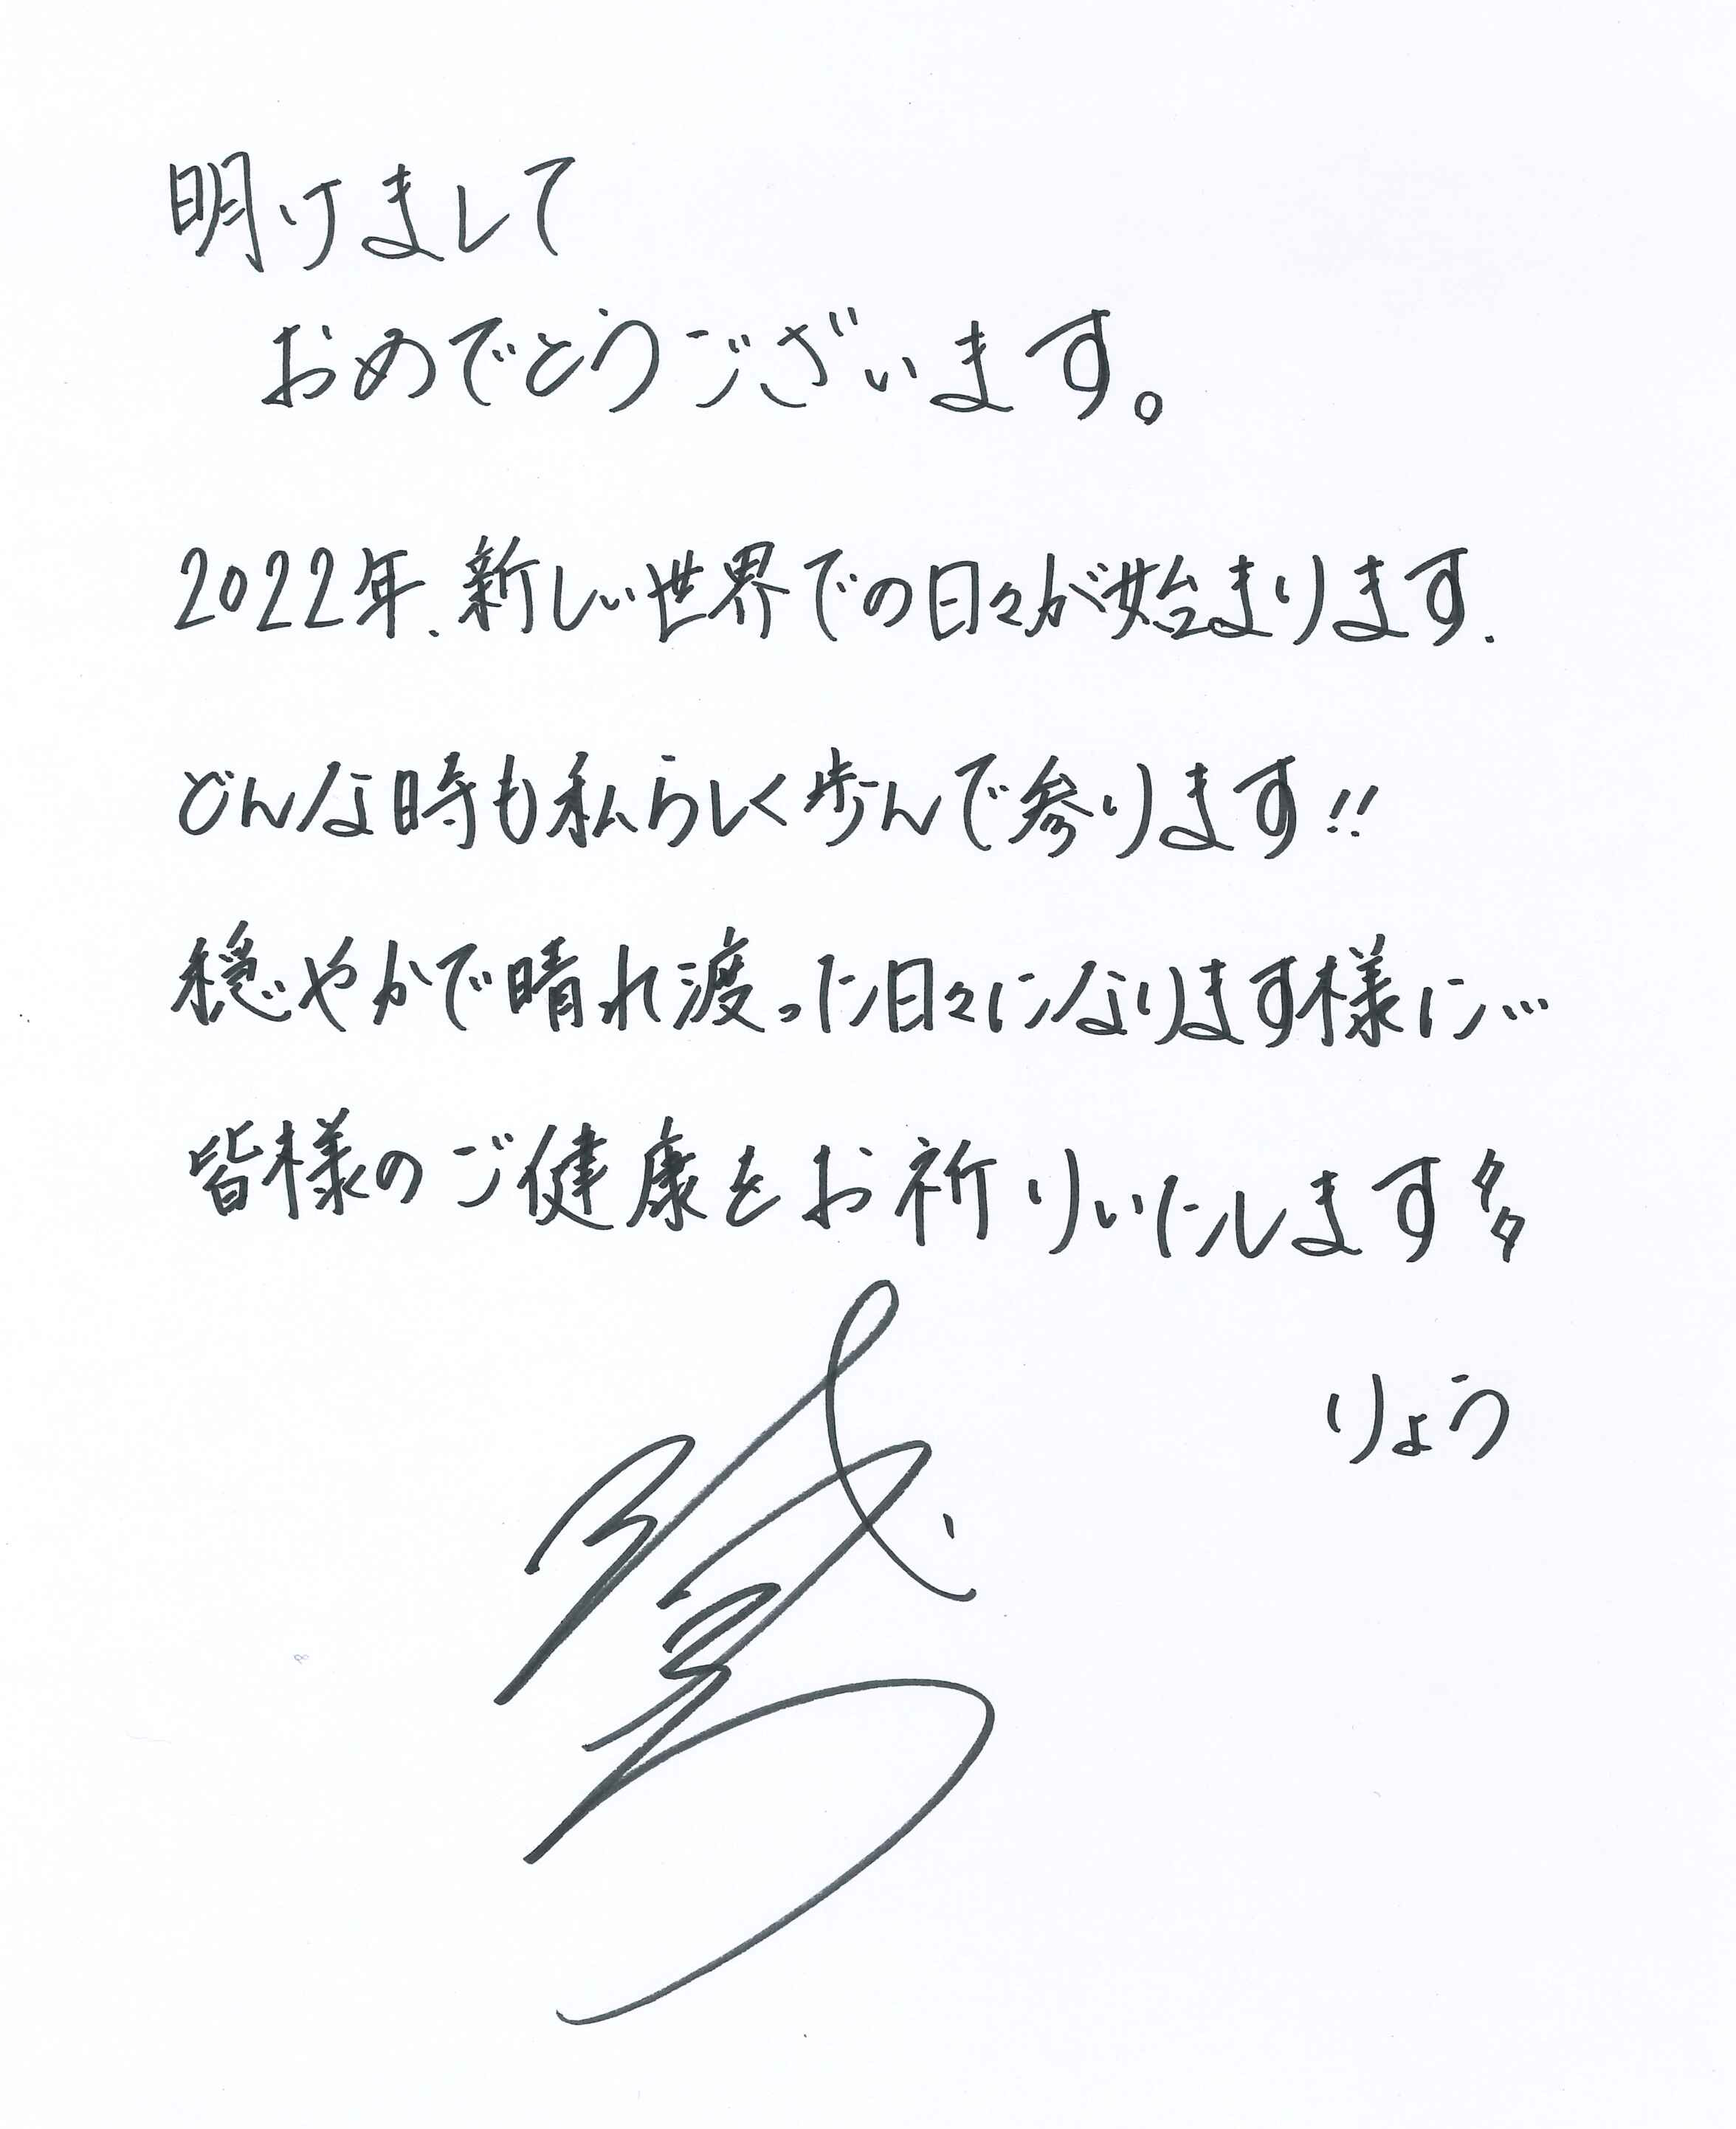 明けまして
おめでとうございます。
2022年、新しい世界での日々が始まります.
どんな時も私らしく歩んで参ります!!
穏やかで晴れ渡った日々になります様に…
皆様のご健康をお祈りいたします
りょう